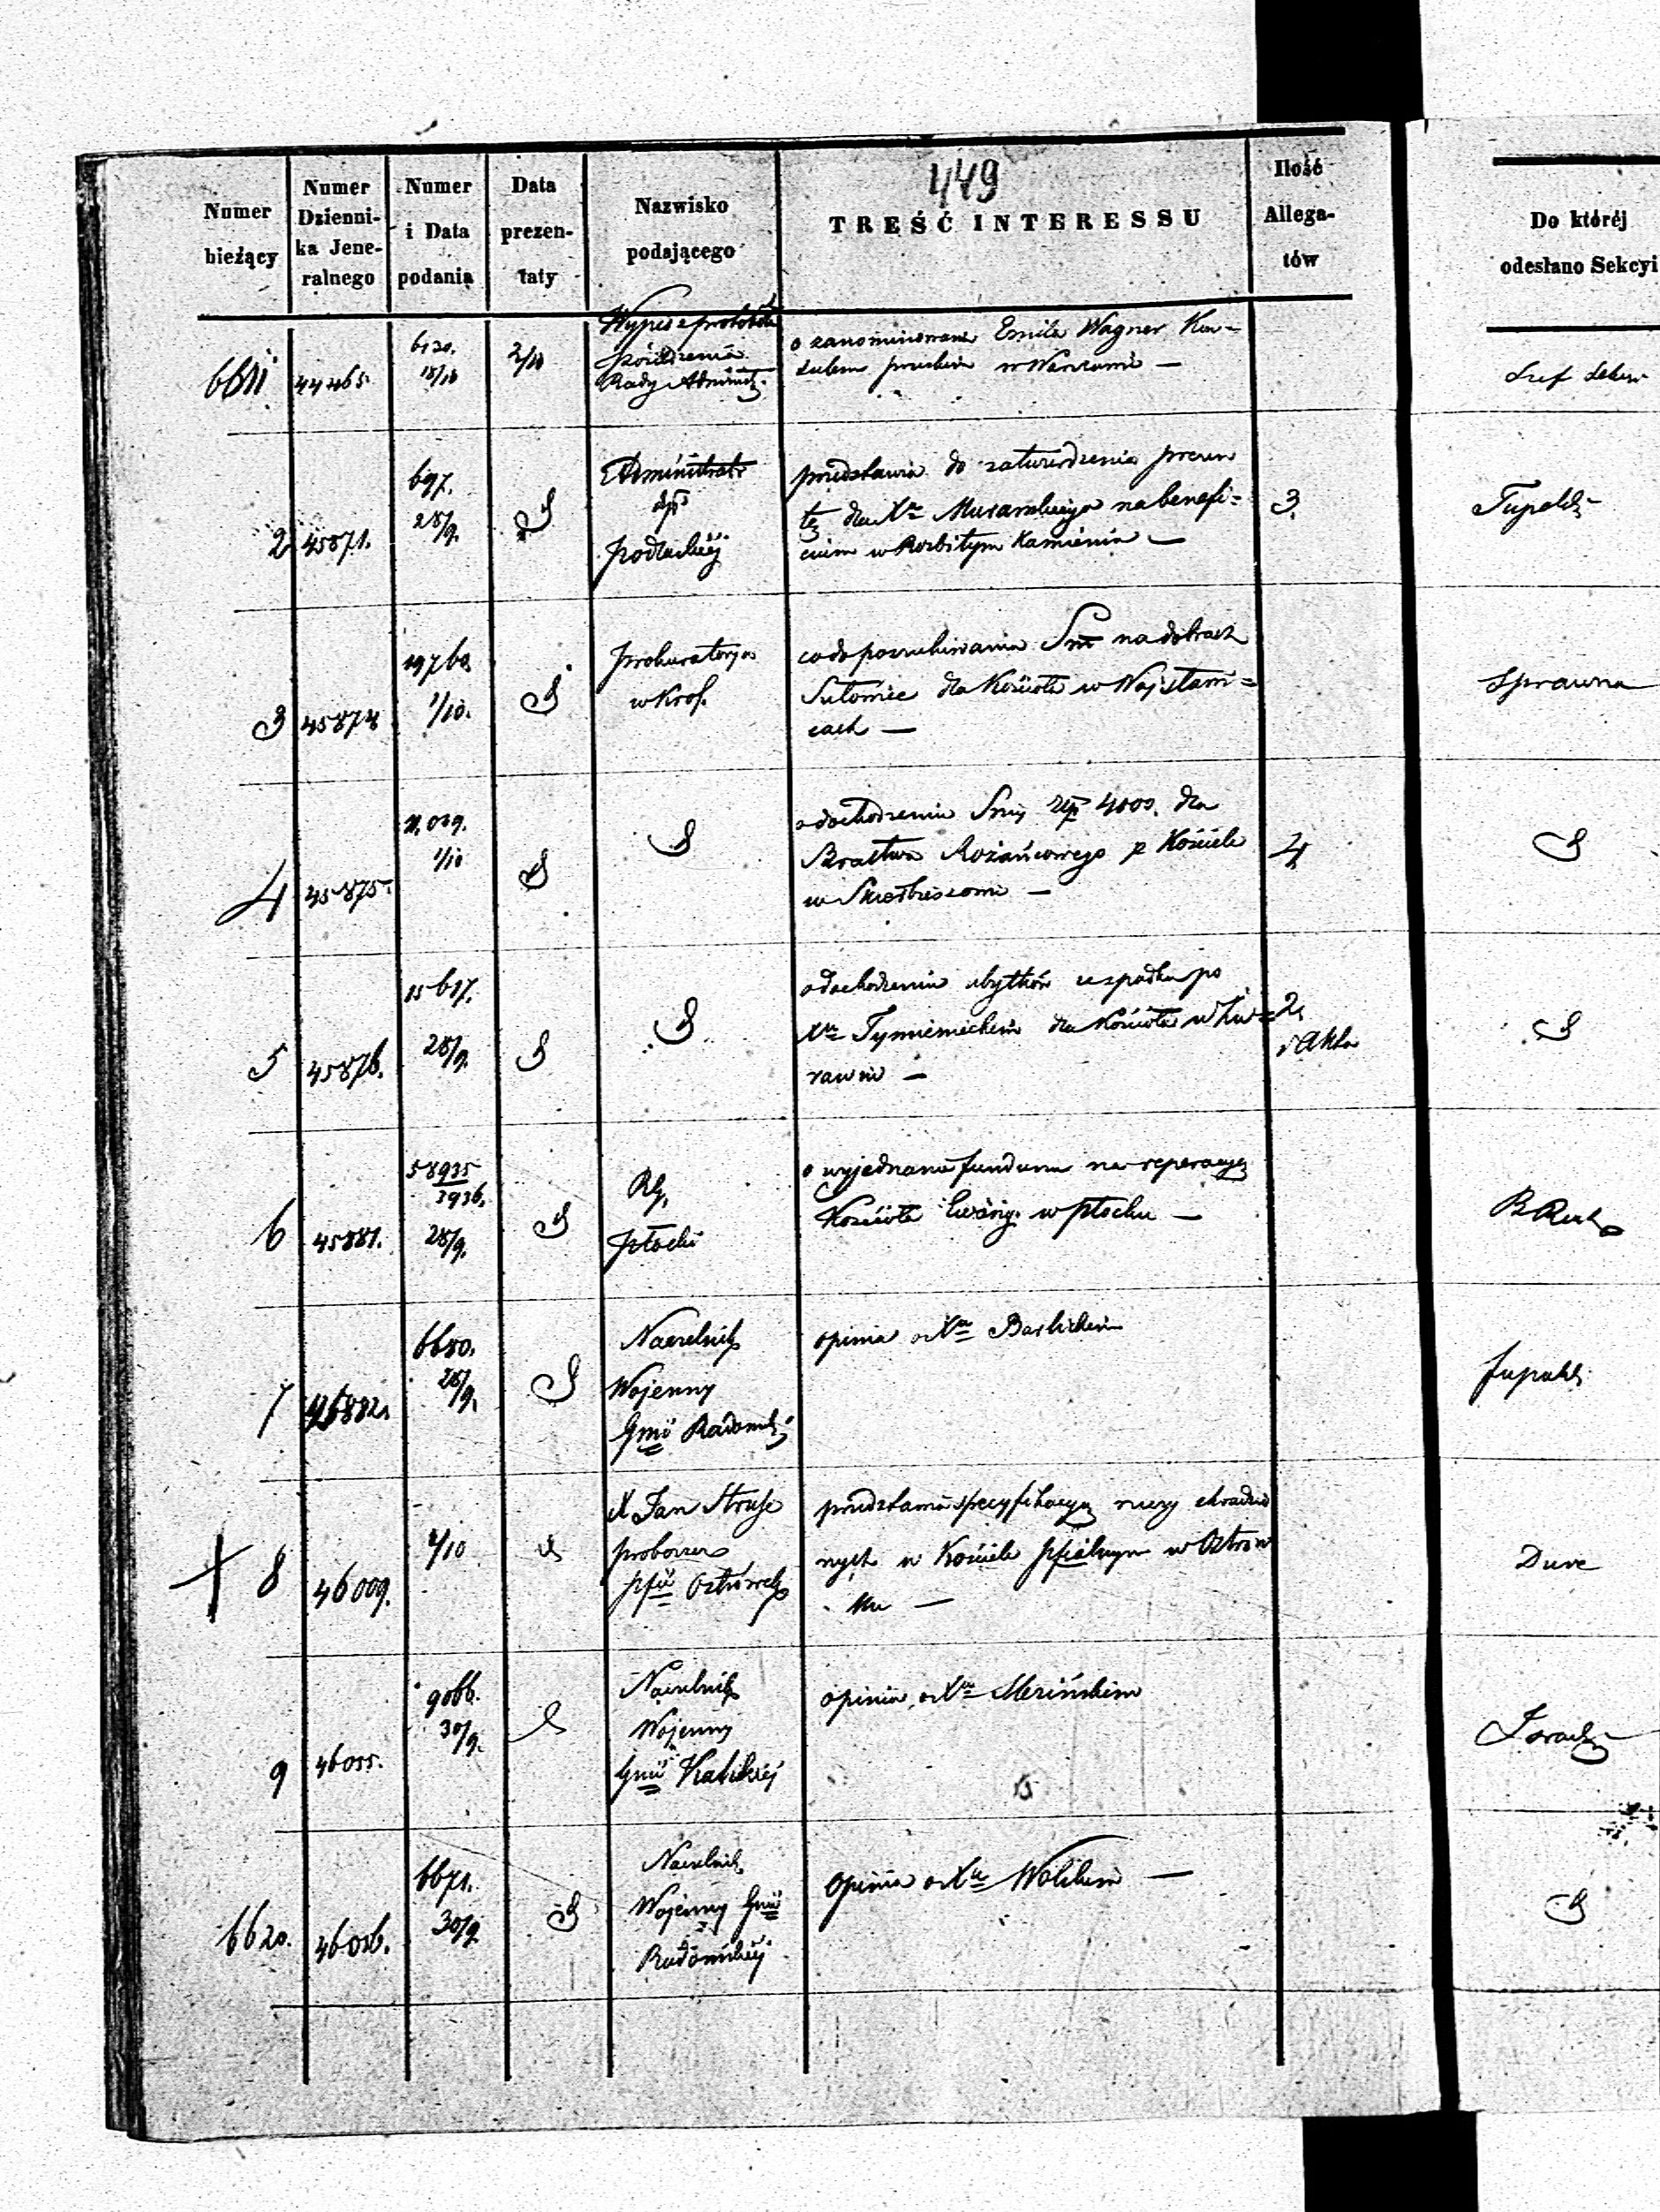 449
Numer bieżący
Numer Dzienni-ka Jene-ralnego
Numer i Data podania
Data prezen-taty
Nazwisko podającego
TREŚĆ INTERESSU
Ilość Allega-tów
Do któréj odesłano Sekcyi
6611 44465. 6130. 18/10 2/10
Wypis z protokółu
posiedzenia
Rady Administr.
o zanominowaniu Emila Wagner Kon-
sulem pruskim w Warszawie —
Szef Sekcyi
2 45871. 697. 28/9.
Administrator
dyi
podlaskiéj
przedstawia do zatwierdzenia prezen
tę dla Xa na benefi-
cium w Rozbitym Kamieniu —
3.
3 45874 19760. 1/10.
prokuratorya
w Król.
co do poszukiwania Smi na dobrach
Sułowiec dla Kościoła w Wojsławi=
cach —
Sprawna
4 45875. 11,029. 1/10
o dochodzeniu Smy 4000. dla
Bractwa Rożańcowego p Kościele
w Skierbieszowie —
4
5 45876. 15617. 28/9.
o dochodzeniu ubytków ze spadku po
Xu Tymienieckim dla Kościoła w Żu=
rawnie —
2. i Akta
6 45881. 58935/3936. 28/9.
RG.
Płocki
o wyjednanie funduszu na reperacyą
Kościoła Ewang. w Płocku —
7 45882. 6680. 28/9.
Naczelnik
Wojenny
Gnii Radomsk.
opinia o Xu
8 46009. 2/10
X Jan
proboszcz
pfii Ostrówek
przedstawia specyfikacyą rzeczy skradzio
nych w Kościele pfialnym w Ostrów
ku —
Dure
9 46055. 9066. 30/9.
Naczelnik
Wojenny
Gnii Kaliskiéj
opinia o Xu Merińskim
6620. 46056. 6671. 30/9
Naczelnik
Wojenny Gnii
Radomskiéj
Opinia o Xu Wolskim —